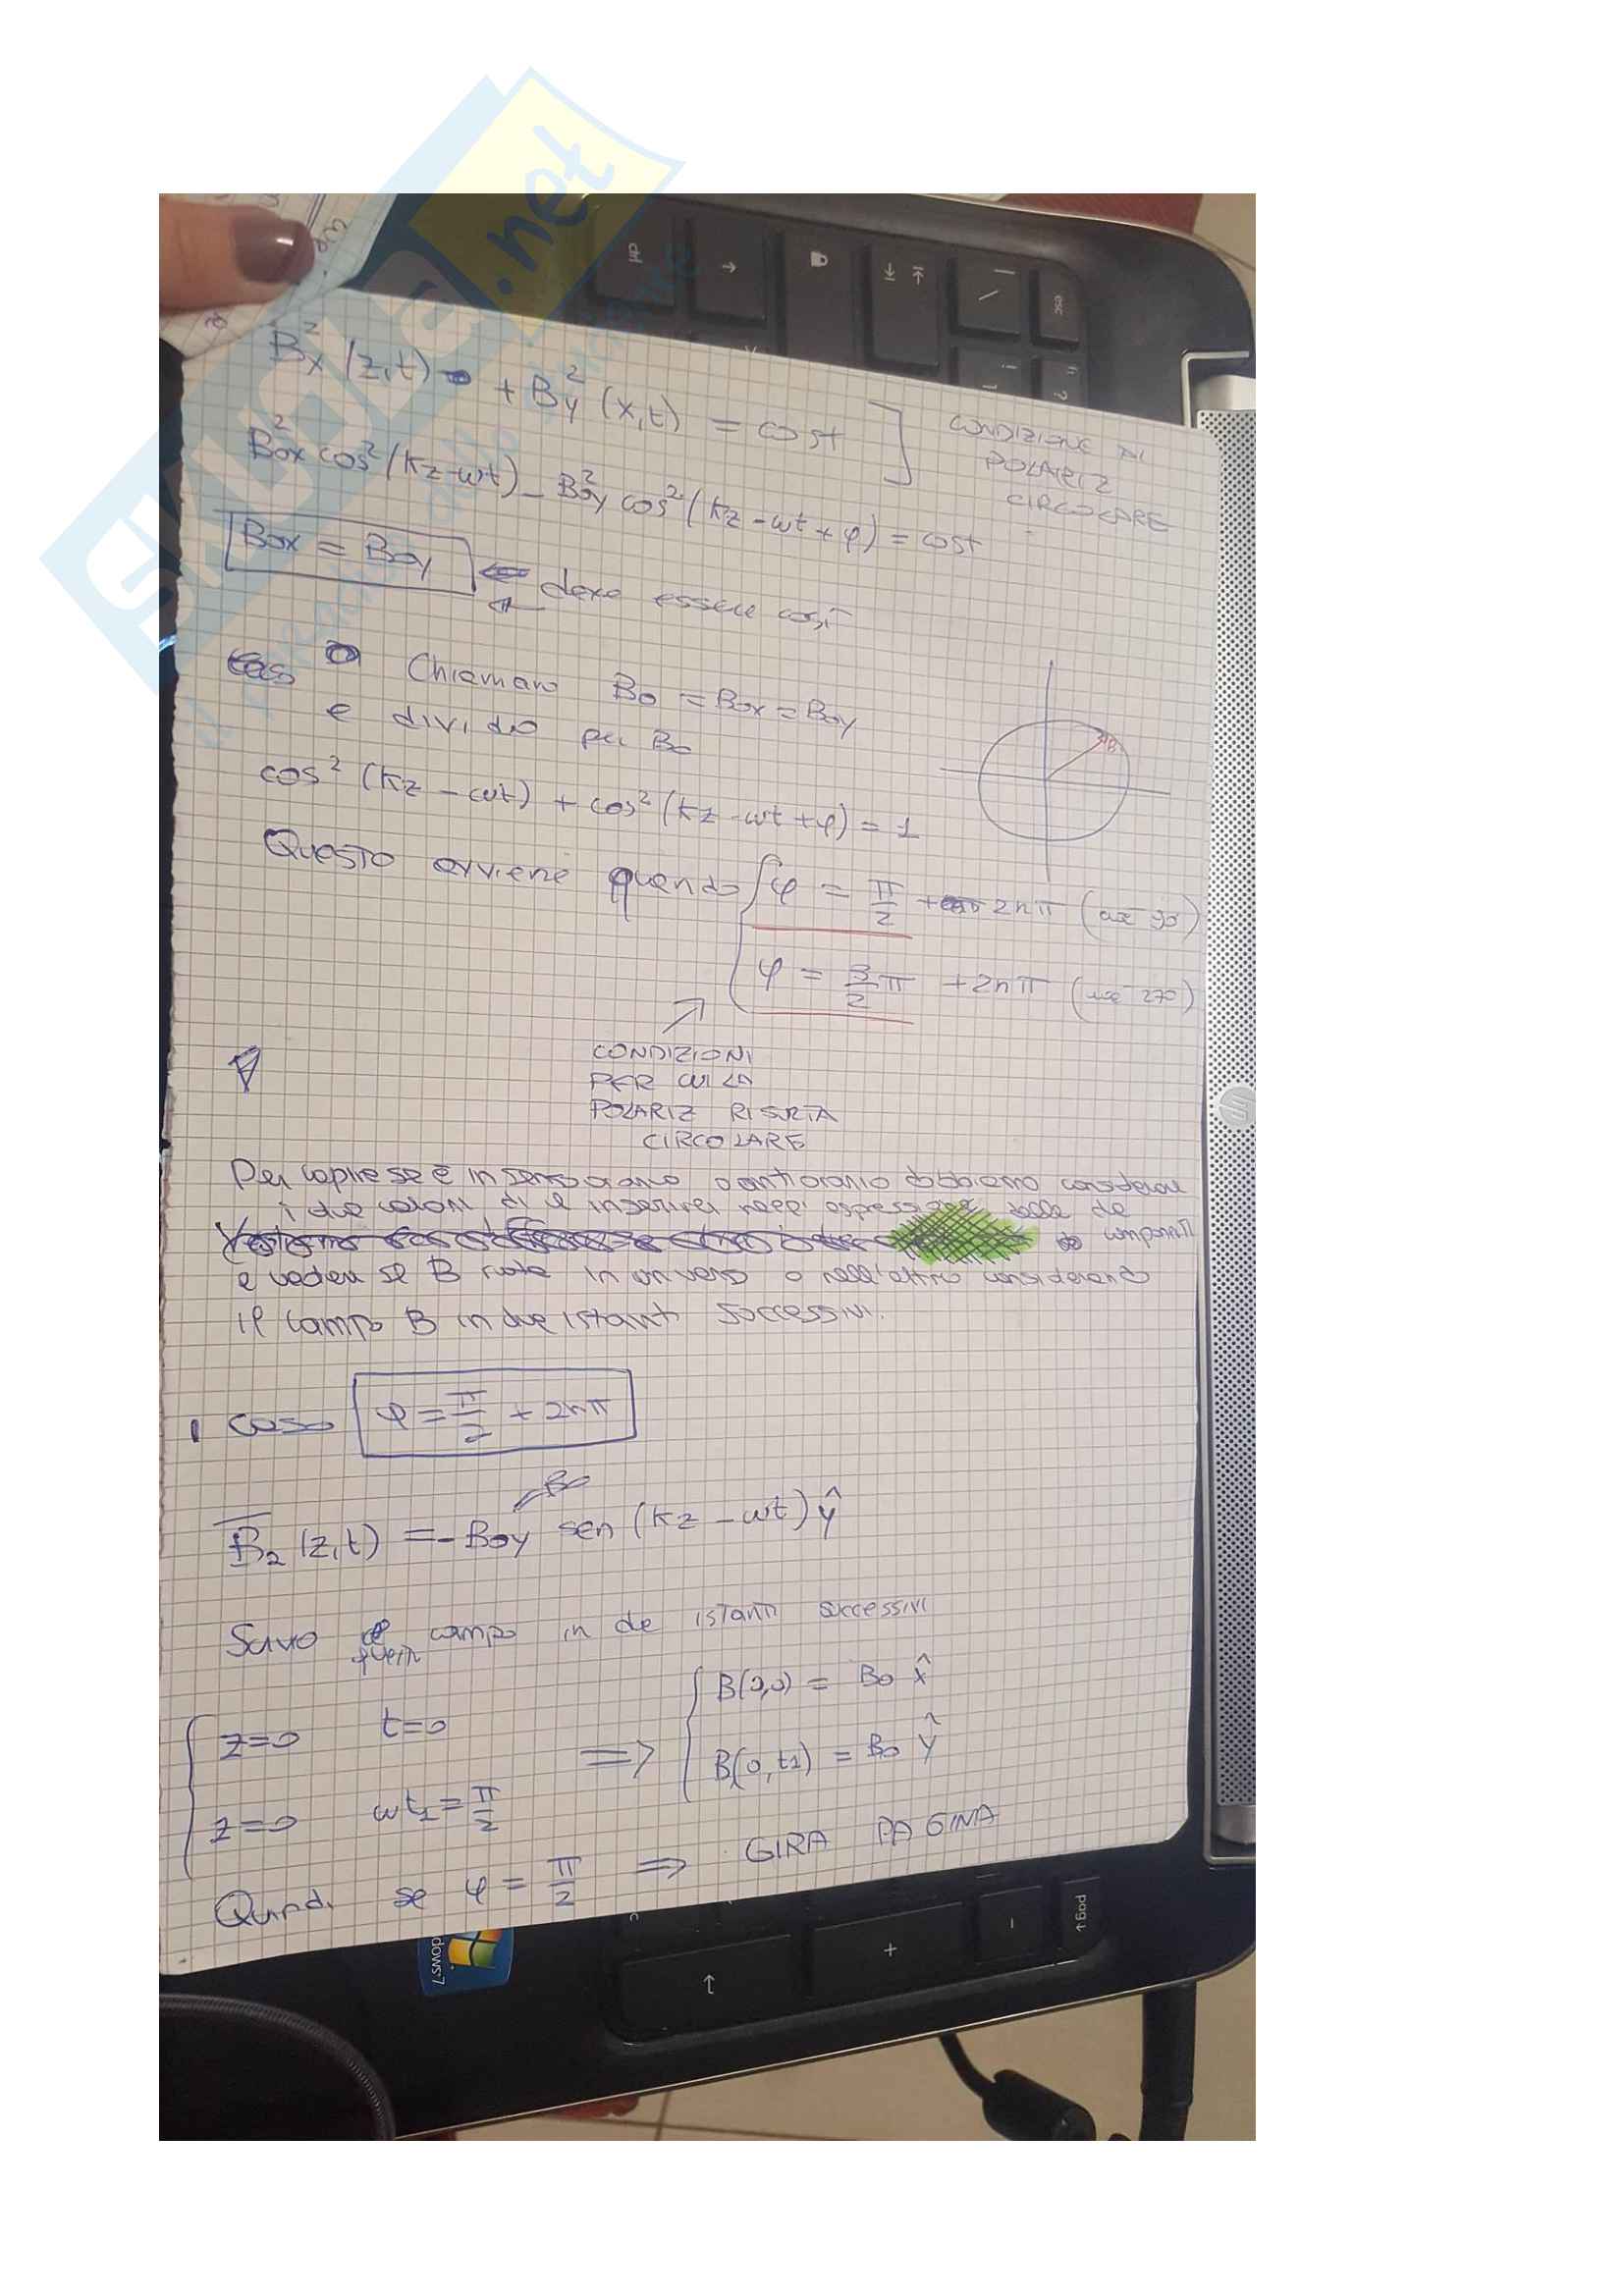 SKUOLA.net
Bx² (z,t) + By² (x,t) = cost
CONDIZIONE DI
POLARIZ
CIRCOLARE
Box² cos² (kz-wt) - Boy² cos² (kz - wt + φ) = cost
Box = Boy ⇐ deve essere così
Chiamano Bo = Box = Boy
e divido per Bo
cos² (kz - wt) + cos² (kz - wt + φ) = 1
B
Questo avviene quando { φ = π/2 + 2nπ (cioè 90°)
φ = 3/2 π + 2nπ (cioè 270)
CONDIZIONI
PER CUI LA
POLARIZ RISULTA
CIRCOLARE
Per capire se è in senso orario o antiorario dobbiamo considerare
i due valori di φ inserirei nell' espressione delle de
componenti
e vedere se B ruota in un verso o nell'altro considerando
il campo B in due istanti successivi.
1 caso φ = π/2 + 2nπ
Bo
B₂ (z,t) = - Boy sen (kz - wt) ŷ
Scrivo campo in de istanti successivi
z=0 t=0 ⇒ B(0,0) = Bo x̂
z=0 wt₁ = π/2 B(0,t₁) = Bo ŷ
Quindi se φ = π/2 ⇒ GIRA PAGINA
esc
pag
dows 7